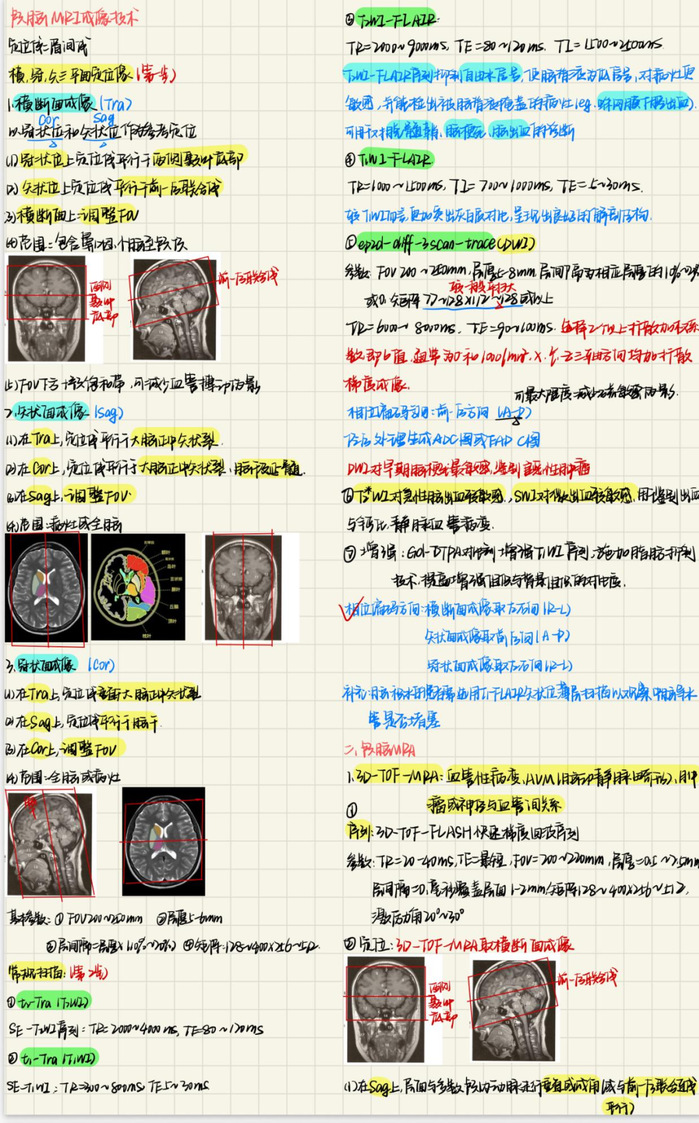 颅脑MRI成像技术
定位线:层间线
横、冠、矢三平面定位像(第一步)
1.横断面成像(Tra)
Cor Sag
以冠状位和矢状位作为参考定位
(1)冠状位上定位线平行于两侧颞叶底部
(2)矢状位上定位线平行于前-后联合线
(3)横断面上:调整FOV
(4)范围:
两侧
颞叶
底部
前-后联合线
(5)FOV下方 饱和带,可减少血管搏动伪影
2.矢状面成像(Sag)
(1)在Tra上,定位线平行于大脑正中矢状裂.
(2)在Cor上,定位线平行于大脑正中矢状裂、脑干及正中
(3)在Sag上,调整FOV.
(4)范围:病灶或全脑
3.冠状面成像(Cor)
(1)在Tra上,定位线垂直于大脑正中矢状裂
(2)在Sag上,定位线平行于脑干.
(3)在Cor上,调整FOV
(4)范围:全脑或病灶
基本参数:① FOV 200~250mm ②层厚5~8mm
③层间隔=层厚×(10%~20%) ④矩阵:128~400×256~512.
常规扫描:(第2步)
① t2-Tra(T2WI)
SE-T2WI序列:TR=2000~4000ms, TE=80~120ms
② t1-Tra(T1WI)
SE-T1WI:TR=300~800ms, TE5~30ms
③ T2WI-FLAIR:
TR=2000~9000ms, TE=80~120ms. TI=1500~2500ms
T2WI-FLAIR序列抑制自由水信号,使脑脊液为低信号,对病灶更
敏感,并能检出被脑脊液掩盖的病灶(eg.蛛网膜下腔出血).
可用于对 、脑梗死、脑出血的诊断
④ T1WI-FLAIR
TR=1000~1500ms, TI=700~1000ms, TE=5~30ms.
较T1WI而言,更加突出灰白质对比,呈现出良好的解剖结构.
⑤ep2d-diff-3scan-trace(DWI)
参数:FOV 200~250mm,层厚5~8mm 层间隔为相应层厚的10%~20%
或0,矩阵 128 以上
TR=6000~8000ms, TE=90~100ms. 选择2个以上扩散加权系
数即b值,通常为0和1000s/mm². X、Y、Z三轴方向均加扩散
梯度成像.
可最大限度减少 伪影.
相位编码方向:前-后方向(A-P)
后处理生成ADC图或EADC图
DWI对早期脑梗死最敏感,鉴别良恶性肿瘤
⑥T2*WI对急性脑出血较敏感,SWI对微出血较敏感,用于鉴别出血
与钙化、静脉血管病变.
⑦增强:Gd-DTPA 增强T1WI序列:施加脂肪抑制
技术.提高增强组织与背景组织的对比度.
相位编码方向:横断面成像取左右向(R-L)
矢状面成像取前后向(A-P)
冠状面成像取左右向(R-L)
补充:脑积水 T1-FLAIR矢状位薄层扫描以观察中脑导水
管是否堵塞
二、颅脑MRA
1.3D-TOF-MRA:血管性病变、AVM(脑动静脉畸形)、脑肿
瘤或神经与血管间关系
①
序列:3D-TOF-FLASH快速梯度回波序列
参数:TR=20-40ms,TE=最短,FOV=200~220mm,层厚=0.5~2.5mm,
层间隔=0,
激发角20°~30°
②定位:3D-TOF-MRA取横断面成像
两侧
颞叶
底部
前-后联合线
(1)在Sag上,层面与多数颅内动脉走行垂直或成角(或与前-后联合线
平行)